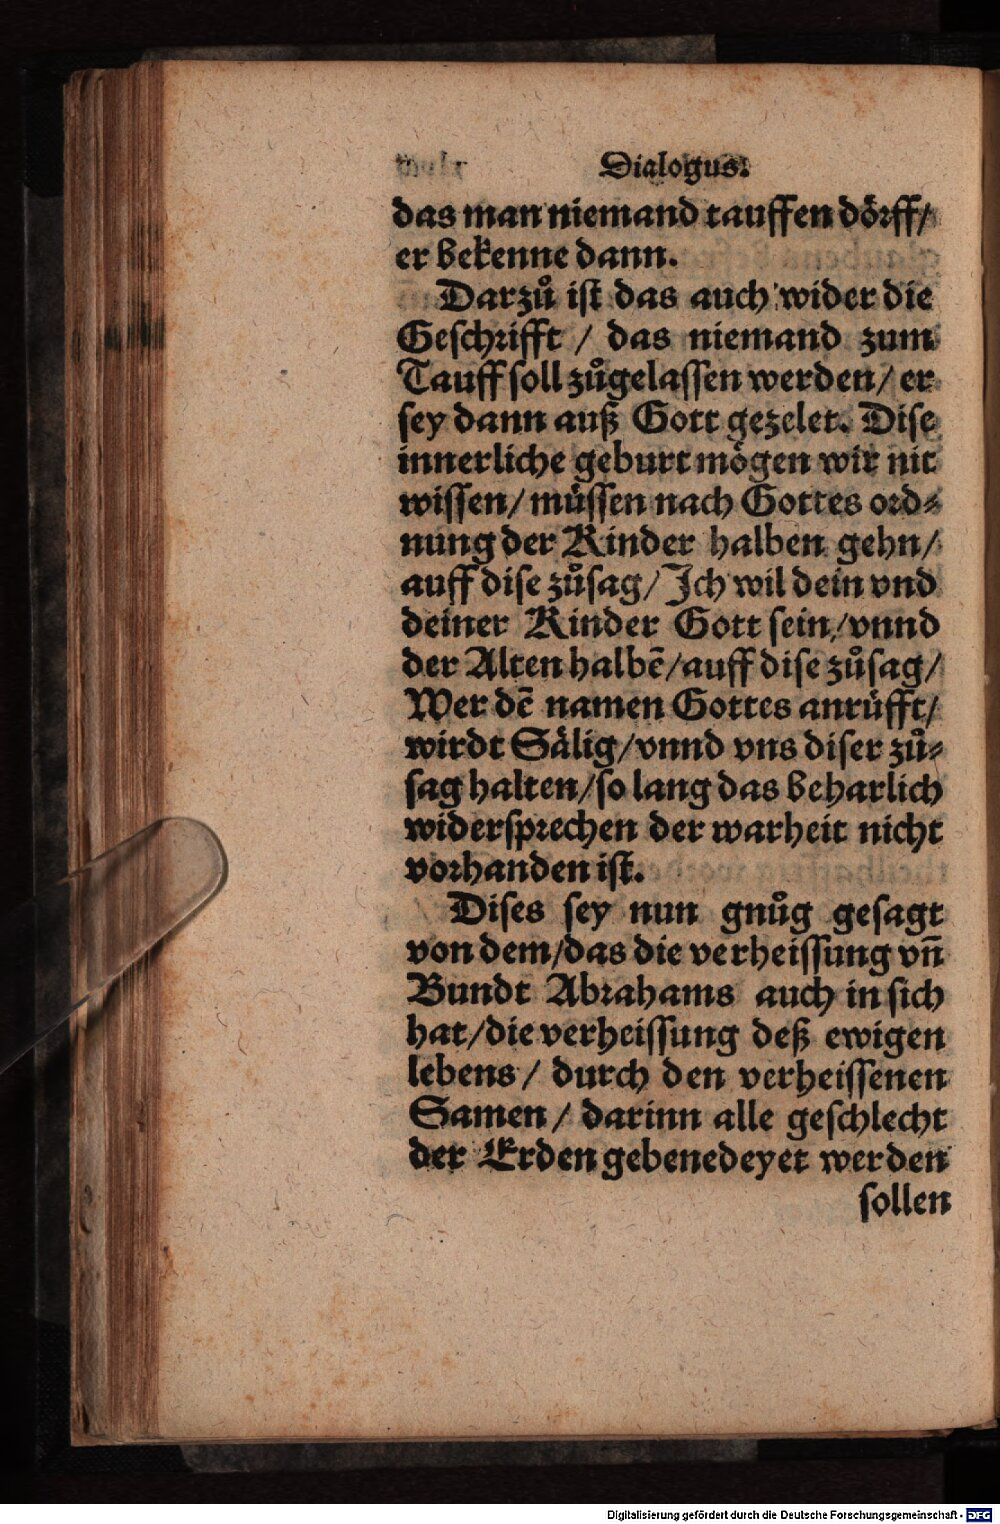 Dialogus.
das man niemand tauffen dörff/
er bekenne dann.
Darzů ist das auch wider die
Geschrifft / das niemand zum
Tauff soll zůgelassen werden/ er
sey dann auß Gott gezelet. Dise
innerliche geburt mögen wir nit
wissen/ müssen nach Gottes ord⸗
nung der Kinder halben gehn/
auff dise zůsag/ Ich wil dein vnd
deiner Kinder Gott sein/ vnnd
der Alten halbē/ auff dise zůsag/
Wer dē namen Gottes anrüfft/
wirdt Sälig/ vnnd vns diser zů⸗
sag halten/ so lang das beharlich
widersprechen der warheit nicht
vorhanden ist.
Dises sey nun gnůg gesagt
von dem/ das die verheissung vn̄
Bundt Abrahams auch in sich
hat/ die verheissung deß ewigen
lebens/ durch den verheissenen
Samen/ darinn alle geschlecht
der Erden gebenedeyet werden
sollen
Digitalisierung gefördert durch die Deutsche Forschungsgemeinschaft - DFG